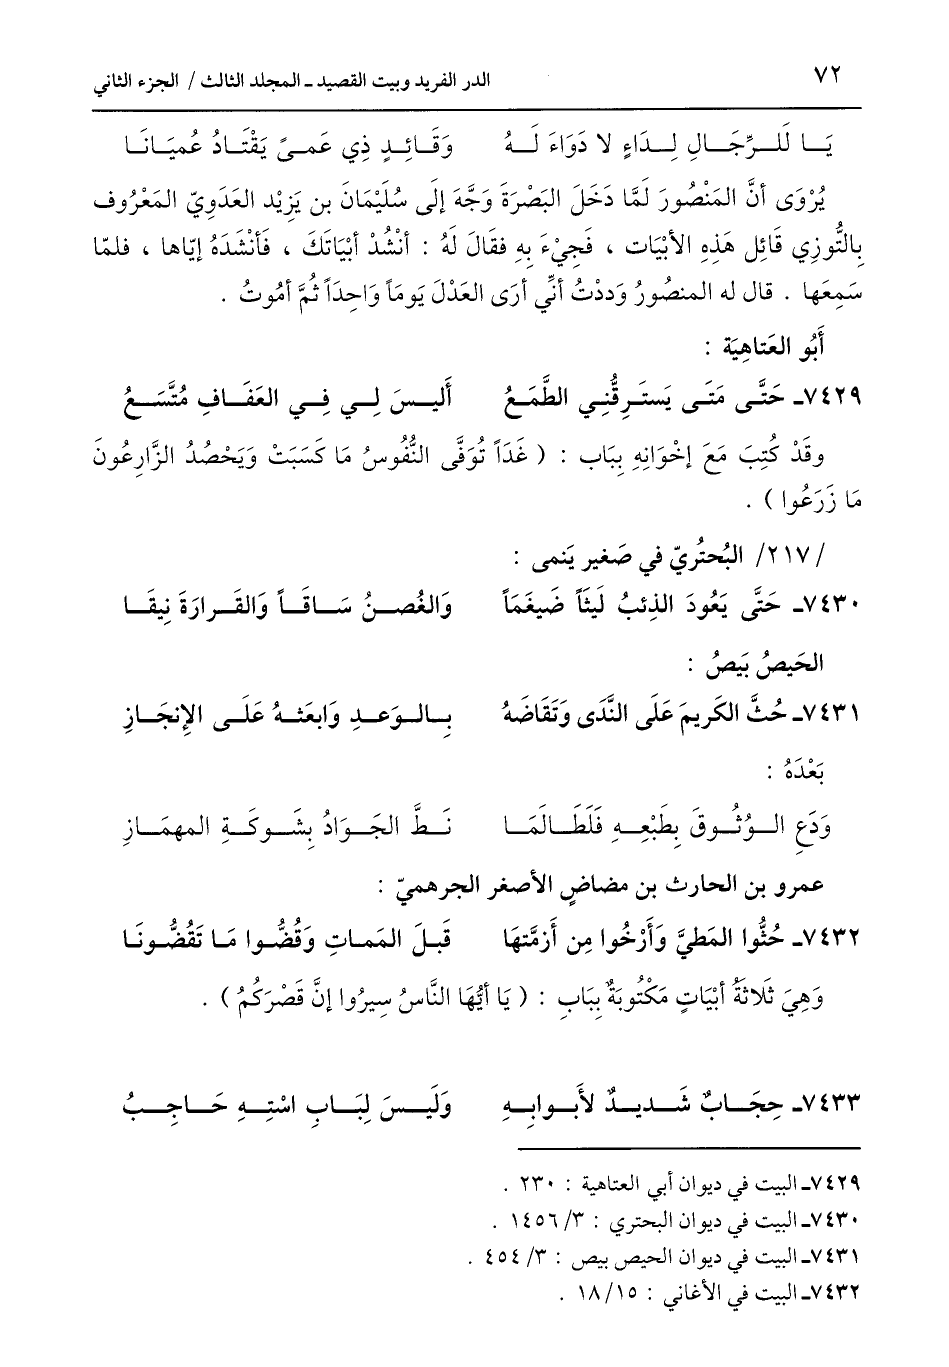 ٧٢ الدر الفريد وبيت القصيد ـ المجلد الثالث / الجزء الثاني
يَا لَلرِّجَالِ لِدَاءٍ لا دَوَاءَ لَهُ وَقَائِدٍ ذِي عَمىً يَقْتَادُ عُميَانَا
يُرْوَى أنَّ المَنْصُورَ لَمَّا دَخَلَ البَصْرَةَ وَجَّهَ إلَى سُلَيْمَانَ بن يَزِيْد العَدَويّ المَعْرُوف
بالتُّوزِي قَائِل هَذِهِ الأبْيَات ، فَجِيْءَ بِهِ فقَالَ لَهُ : أنْشُدْ أبْيَاتَكَ ، فَأنْشَدَهُ إيَّاها ، فلمّا
سَمِعَها . قال له المنصُورُ وَددْتُ أنِّي أرَى العَدْلَ يَومَاً وَاحِدَاً ثُمَّ أمُوتُ .
أَبُو العَتاهِيَة :
٧٤٢٩ـ حَتَّى مَتَى يَستَرِقُّنِي الطَّمَعُ أَليسَ لِي فِي العَفَافِ مُتَّسَعُ
وقَدْ كُتِبَ مَعَ إخْوَانِهِ بِبَاب : ( غَدَاً تُوَفَّى النُّفُوسُ مَا كَسَبَتْ وَيَحْصُدُ الزَّارِعُونَ
مَا زَرَعُوا ) .
/٢١٧/ البُحتُريّ في صَغير يَنمى :
٧٤٣٠ـ حَتَّى يَعُودَ الذِئبُ لَيثَاً ضَيغَمَاً وَالغُصنُ سَاقَاً وَالقَرارَةَ نِيقَا
الحَيصُ بَيصُ :
٧٤٣١ـ حُثَّ الكَريمَ عَلَى النَّدَى وَتَقَاضَهُ بِالوَعدِ وَابعَثهُ عَلَى الإِنجَازِ
بَعْدَهُ :
وَدَعِ الوُثُوقَ بِطَبْعِهِ فَلَطَالَمَا نَطَّ الجَوَادُ بِشَوكَةِ المِهمَازِ
عمرو بن الحارث بن مضاضٍ الأصغر الجرهميّ :
٧٤٣٢ـ حُثُّوا المَطيَّ وَأَرْخُوا مِن أَزمَّتهَا قَبلَ المَماتِ وَقُضُّوا مَا تَقُضُّونَا
وَهِيَ ثَلاثَةُ أبْيَاتٍ مَكْتُوبَةٌ بِبَابِ : ( يَا أيُّهَا النَّاسُ سِيرُوا إنَّ قَصْرَكُمُ ) .
٧٤٣٣ـ حِجَابٌ شَديدٌ لأَبوابِهِ وَلَيسَ لِبَابِ اسْتِهِ حَاجِبُ
٧٤٢٩ـ البيت في ديوان أبي العتاهية : ٢٣٠ .
٧٤٣٠ـ البيت في ديوان البحتري : ٣/ ١٤٥٦ .
٧٤٣١ـ البيت في ديوان الحيص بيص : ٣/ ٤٥٤ .
٧٤٣٢ـ البيت في الأغاني : ١٨/١٥ .